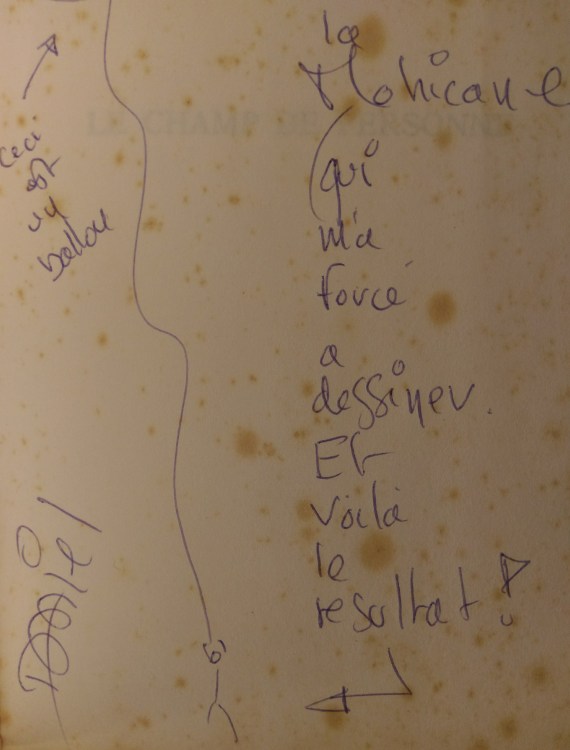 LE CHAMP DE PERSONNE
Ceci
est
un
ballon
la
Mohicane
(qui
m'a
forcé
a
dessiner.
Et
voila
le
resultat!